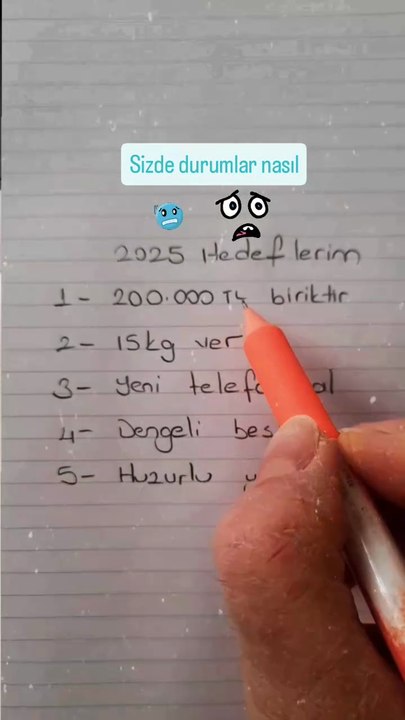 Sizde durumlar nasıl
2025 Hedeflerim
1- 200.000 TL biriktir
2- 15kg ver
3- Yeni al
4- Dengeli
5- Huzurlu